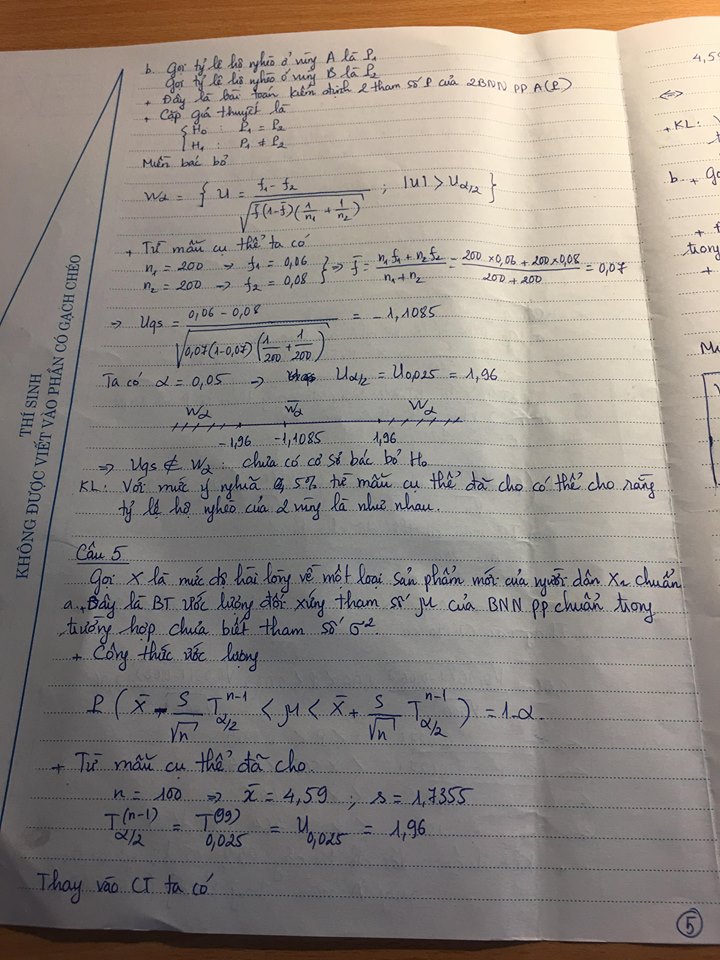 b. Gọi tỷ lệ hộ nghèo ở vùng A là P₁
Gọi tỷ lệ hộ nghèo ở vùng B là P₂
+ Đây là bài toán kiểm định 2 tham số P của 2BNN pp A(P)
+ Cặp giả thuyết là
{ H₀ : P₁ = P₂
H₁ : P₁ ≠ P₂
Miền bác bỏ
Wα = { U = (f₁ - f₂) / √(f̄(1-f̄)(1/n₁ + 1/n₂)) ; |U| > Uα/2 }
+ Từ mẫu cụ thể ta có
n₁ = 200 → f₁ = 0,06
n₂ = 200 → f₂ = 0,08 } ⇒ f̄ = (n₁f₁ + n₂f₂)/(n₁ + n₂) = (200×0,06 + 200×0,08)/(200 + 200) = 0,07
⇒ Uqs = (0,06 - 0,08) / √(0,07(1-0,07)(1/200 + 1/200)) = -1,1085
Ta có α = 0,05 ⇒ Uα/2 = U0,025 = 1,96
Wα W̄α Wα
-1,96 -1,1085 1,96
⇒ Uqs ∉ Wα : chưa có cơ sở bác bỏ H₀
KL: Với mức ý nghĩa 5% từ mẫu cụ thể đã cho có thể cho rằng
tỷ lệ hộ nghèo của 2 vùng là như nhau.
Câu 5
Gọi X là mức độ hài lòng về một loại sản phẩm mới của người dân X~ chuẩn
a. + Đây là BT ước lượng đối xứng tham số μ của BNN pp chuẩn trong
trường hợp chưa biết tham số σ²
+ Công thức ước lượng
P( X̄ - S/√n T^{n-1}_{α/2} < μ < X̄ + S/√n T^{n-1}_{α/2} ) = 1-α
+ Từ mẫu cụ thể đã cho.
n = 100 ⇒ x̄ = 4,59 ; s = 1,7355
T^{(n-1)}_{α/2} = T^{(99)}_{0,025} = U_{0,025} = 1,96
Thay vào CT ta có
5
THÍ SINH
KHÔNG ĐƯỢC VIẾT VÀO PHẦN CÓ GẠCH CHÉO
4,59
⇔
+ KL:
b. + Gọ
trong
+